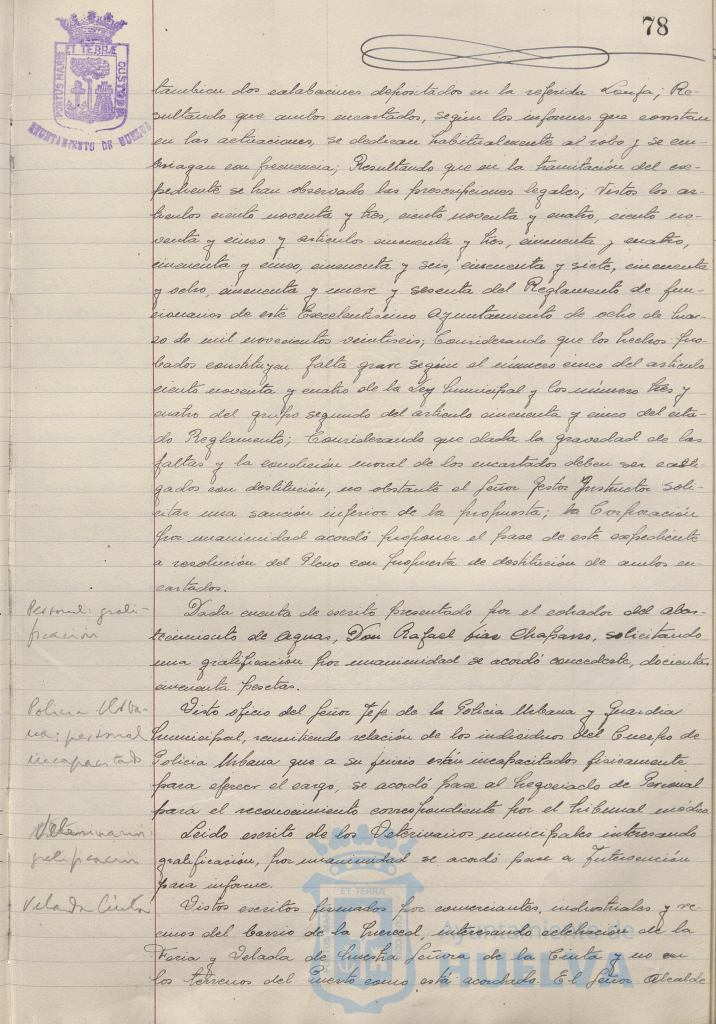 78
PORTUS MARIS ET TERRÆ CUSTODIA
AYUNTAMIENTO DE HUELVA
tambien dos calabacines depositados en la referida Lonja; Re-
sultando que ambos encartados, según los informes que constan
en las actuaciones, se dedican habitualmente al robo y se em-
briagan con frecuencia; Resultando que en la tramitación del ex-
pediente se han observado las prescripciones legales; Vistos los ar-
tículos ciento noventa y tres, ciento noventa y cuatro, ciento no-
venta y cinco y artículos cincuenta y tres, cincuenta y cuatro,
cincuenta y cinco, cincuenta y seis, cincuenta y siete, cincuenta
y ocho, cincuenta y nueve y sesenta del Reglamento de fun-
cionarios de este Excelentísimo Ayuntamiento de ocho de mar-
zo de mil novecientos veintiseis; Considerando que los hechos pro-
bados constituyen falta grave según el número cinco del artículo
ciento noventa y cuatro de la Ley Municipal y los número tres y
cuatro del grupo segundo del artículo cincuenta y cinco del cita-
do Reglamento; Considerando que dada la gravedad de las
faltas y la condición moral de los encartados deben ser casti-
gados con destitución, no obstante el Señor Gestor Instructor soli-
citar una sanción inferior de la propuesta; la Corporación
por unanimidad acordó proponer el pase de este expediente
a resolución del Pleno con propuesta de destitución de ambos en-
cartados.
Personal: grati-
ficación
Dada cuenta de escrito presentado por el cobrador del abas-
tecimiento de aguas, Don Rafael Díaz Chaparro, solicitando
una gratificación por unanimidad se acordó concederle, doscientas
cincuenta pesetas.
Policía Urba-
na: personal
incapacitado
Visto oficio del Señor Jefe de la Policía Urbana y Guardia
Municipal, remitiendo relación de los individuos del Cuerpo de
Policía Urbana que a su juicio están incapacitados físicamente
para ejercer el cargo, se acordó pase al Negociado de Personal
para el reconocimiento correspondiente por el Tribunal médico.
Veterinarios:
gratificación
Leído escrito de los Veterinarios municipales interesando
gratificación, por unanimidad se acordó pase a Intervención
para informe.
Velada Cinta
Vistos escritos firmados por comerciantes, industriales y ve-
cinos del Barrio de la Merced, interesando celebración de la
Feria y Velada de Nuestra Señora de la Cinta y no en
los terrenos del Puerto como está acordado. El Señor Alcalde
Ayuntamiento de
HUELVA